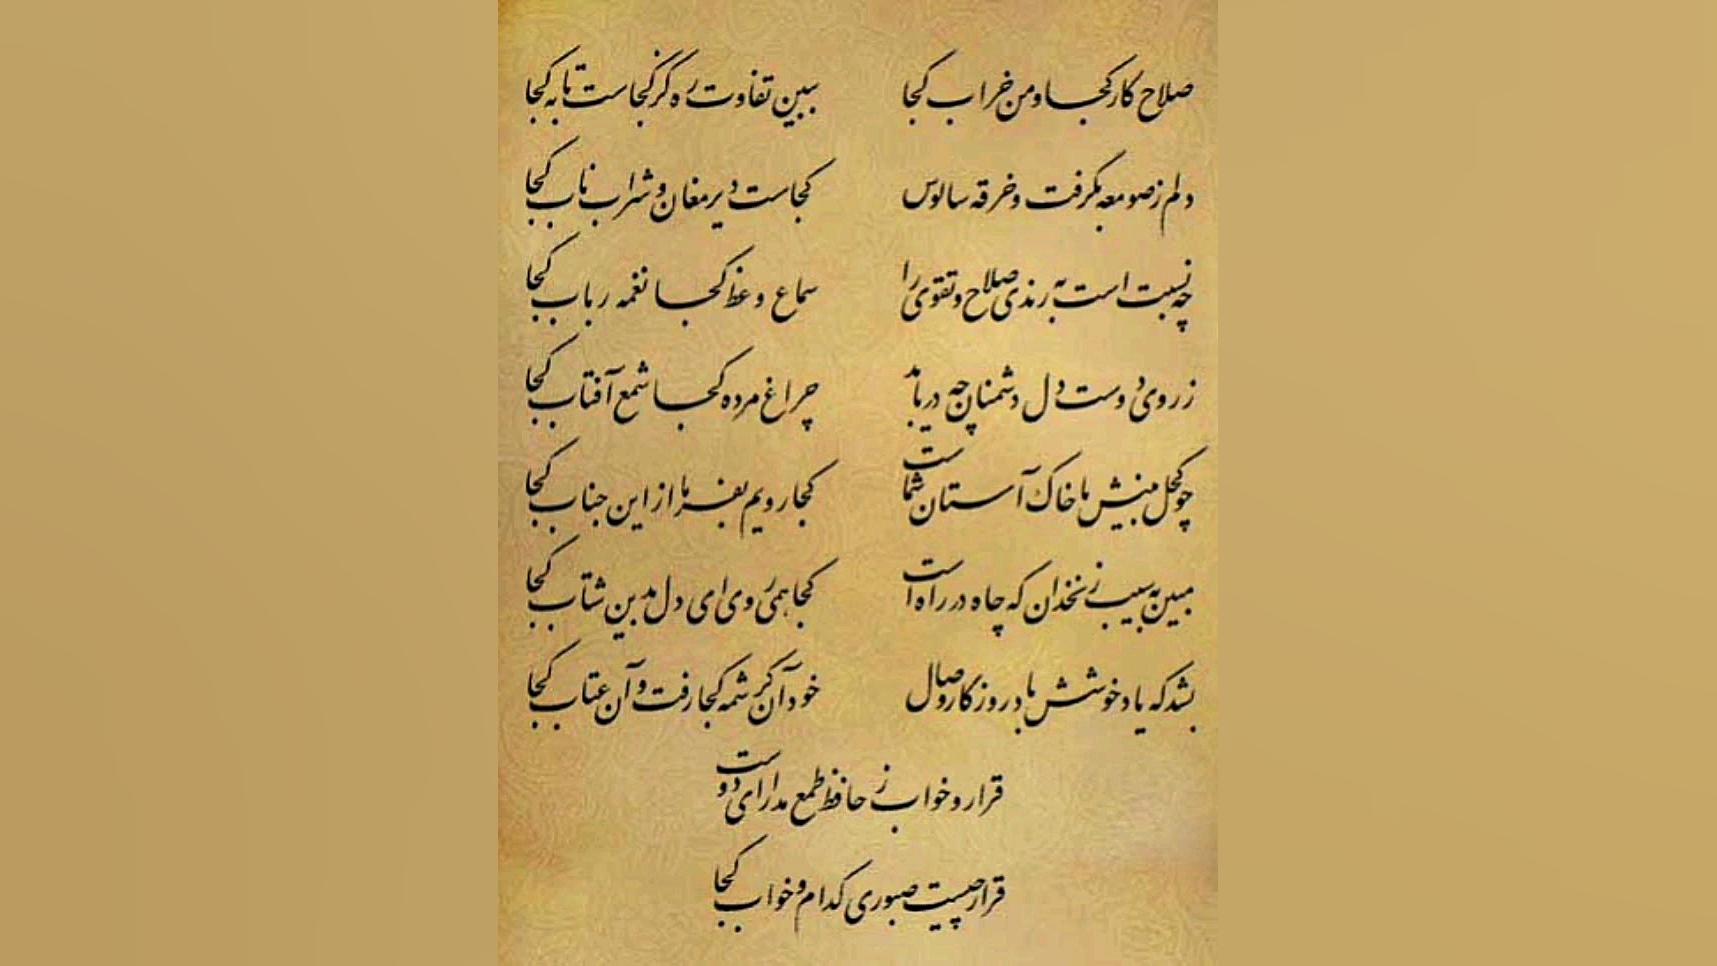 صلاح کار کجا و من خراب کجا ببین تفاوت ره کز کجاست تا به کجا
دلم ز صومعه بگرفت و خرقه سالوس کجاست دیر مغان و شراب ناب کجا
چه نسبت است به رندی صلاح و تقوی را سماع وعظ کجا نغمه رباب کجا
ز روی دوست دل دشمنان چه دریابد چراغ مرده کجا شمع آفتاب کجا
چو کحل بینش ما خاک آستان شماست کجا رویم بفرما از این جناب کجا
مبین به سیب زنخدان که چاه در راه است کجا همی روی ای دل بدین شتاب کجا
بشد که یاد خوشش باد روزگار وصال خود آن کرشمه کجا رفت و آن عتاب کجا
قرار و خواب ز حافظ طمع مدار ای دوست
قرار چیست صبوری کدام و خواب کجا